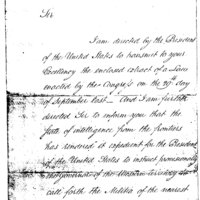 Sir
I am directed by the President
of the United States to transmit to your
Excellency the enclosed extract of a Law
enacted by the Congress on the 29th day
of September last. And I am further
directed Sir to inform you that the
state of intelligence from the frontiers
has rendered it expedient for the President
of the United States to instruct provisionally
of the Western Territory to
call forth the Militia of the nearest